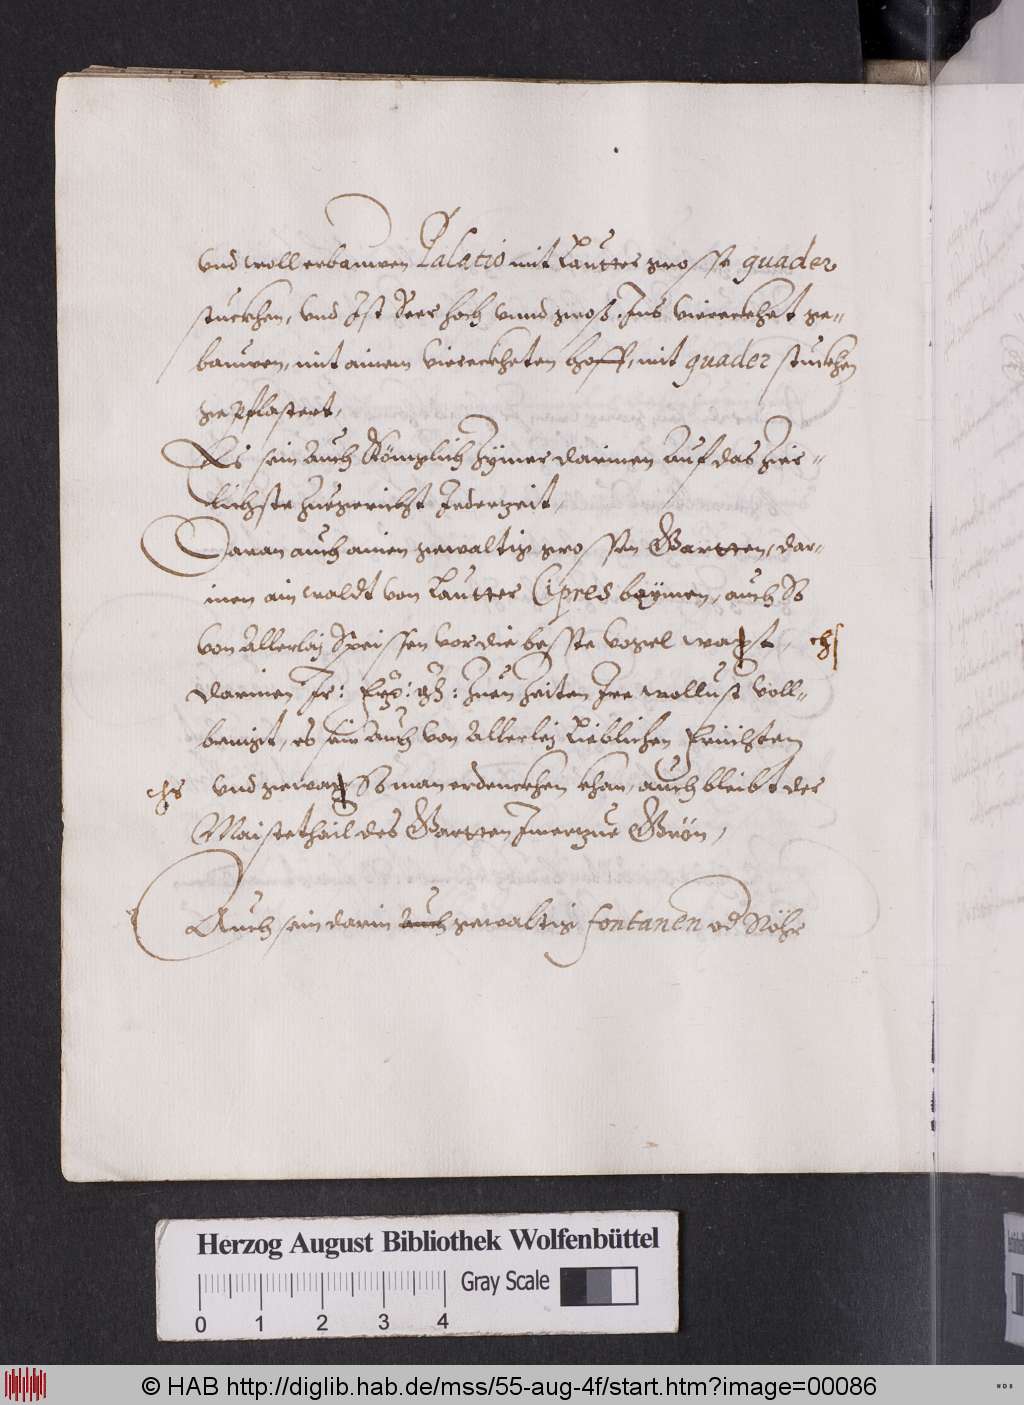 vnd woll erbawen Palatio mit lautter grosse quader
stuckhen, vnd Ist Seer hoch vnnd groß, Ins viereckhet ge-
bauwen, mit ainem viereckheten hoff, mit quader stuckhen
gepflastert,
Es sein auch Königlich Zymer darinen auf das Zier-
lichste Zuegericht Jederzeit,
Daran auch ainen gewaltig grossen Gartten, dar-
inen ain waldt von lautter Cipres baymen, auch So
von allerlaj Speissen vor die beste vogel wachst, chs
darinen Ir: zuen Zeiten Ire wollust voll-
bringt, es sein auch von allerlej lieblichen früchten
chs vnd gewachs So man erdenckhen khan, auch bleibt der
Maistethail des Gartten Imerzue Grön,
Auch sein darin auch gewaltig fontanen od Röhr
Herzog August Bibliothek Wolfenbüttel
Gray Scale
0 1 2 3 4
© HAB http://diglib.hab.de/mss/55-aug-4f/start.htm?image=00086